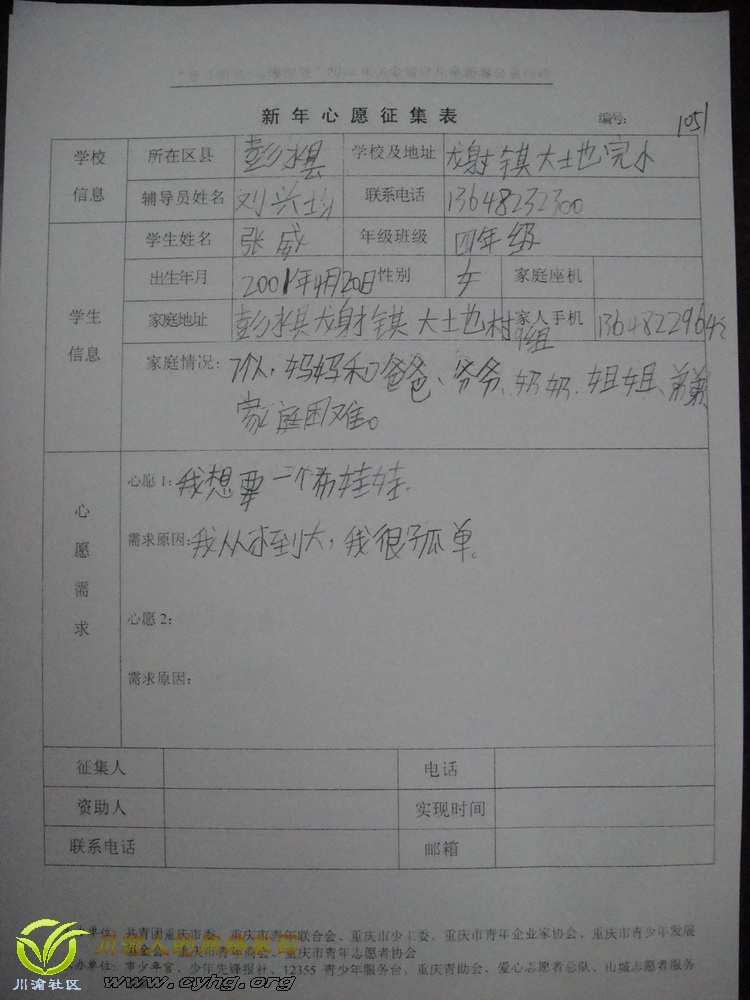 新年心愿征集表 编号: 1051
学校信息 所在区县 彭水县 学校及地址 龙射镇大土地完小
辅导员姓名 刘兴均 联系电话 13648232300
学生信息 学生姓名 张威 年级班级 四年级
出生年月 2001年4月20日 性别 女 家庭座机
家庭地址 彭水县龙射镇大土地村 组 家人手机
家庭情况: 7个人,妈妈和爸爸、爷爷、奶奶、姐姐、弟弟
家庭困难。
心愿需求 心愿1: 我想要一个布娃娃.
需求原因: 我从小到大,我很孤单。
心愿2:
需求原因:
征集人 电话
资助人 实现时间
联系电话 邮箱
单位: 共青团重庆市委、重庆市青年联合会、重庆市少工委、重庆市青年企业家协会、重庆市青少年发展
基金会、重庆市青年商会、重庆市青年志愿者协会
办单位: 市少年宫、少年先锋报社、12355 青少年服务台、重庆青助会、爱心志愿者总队、山城志愿者服务
川渝人的网络家园
川渝社区 www.cyhg.org